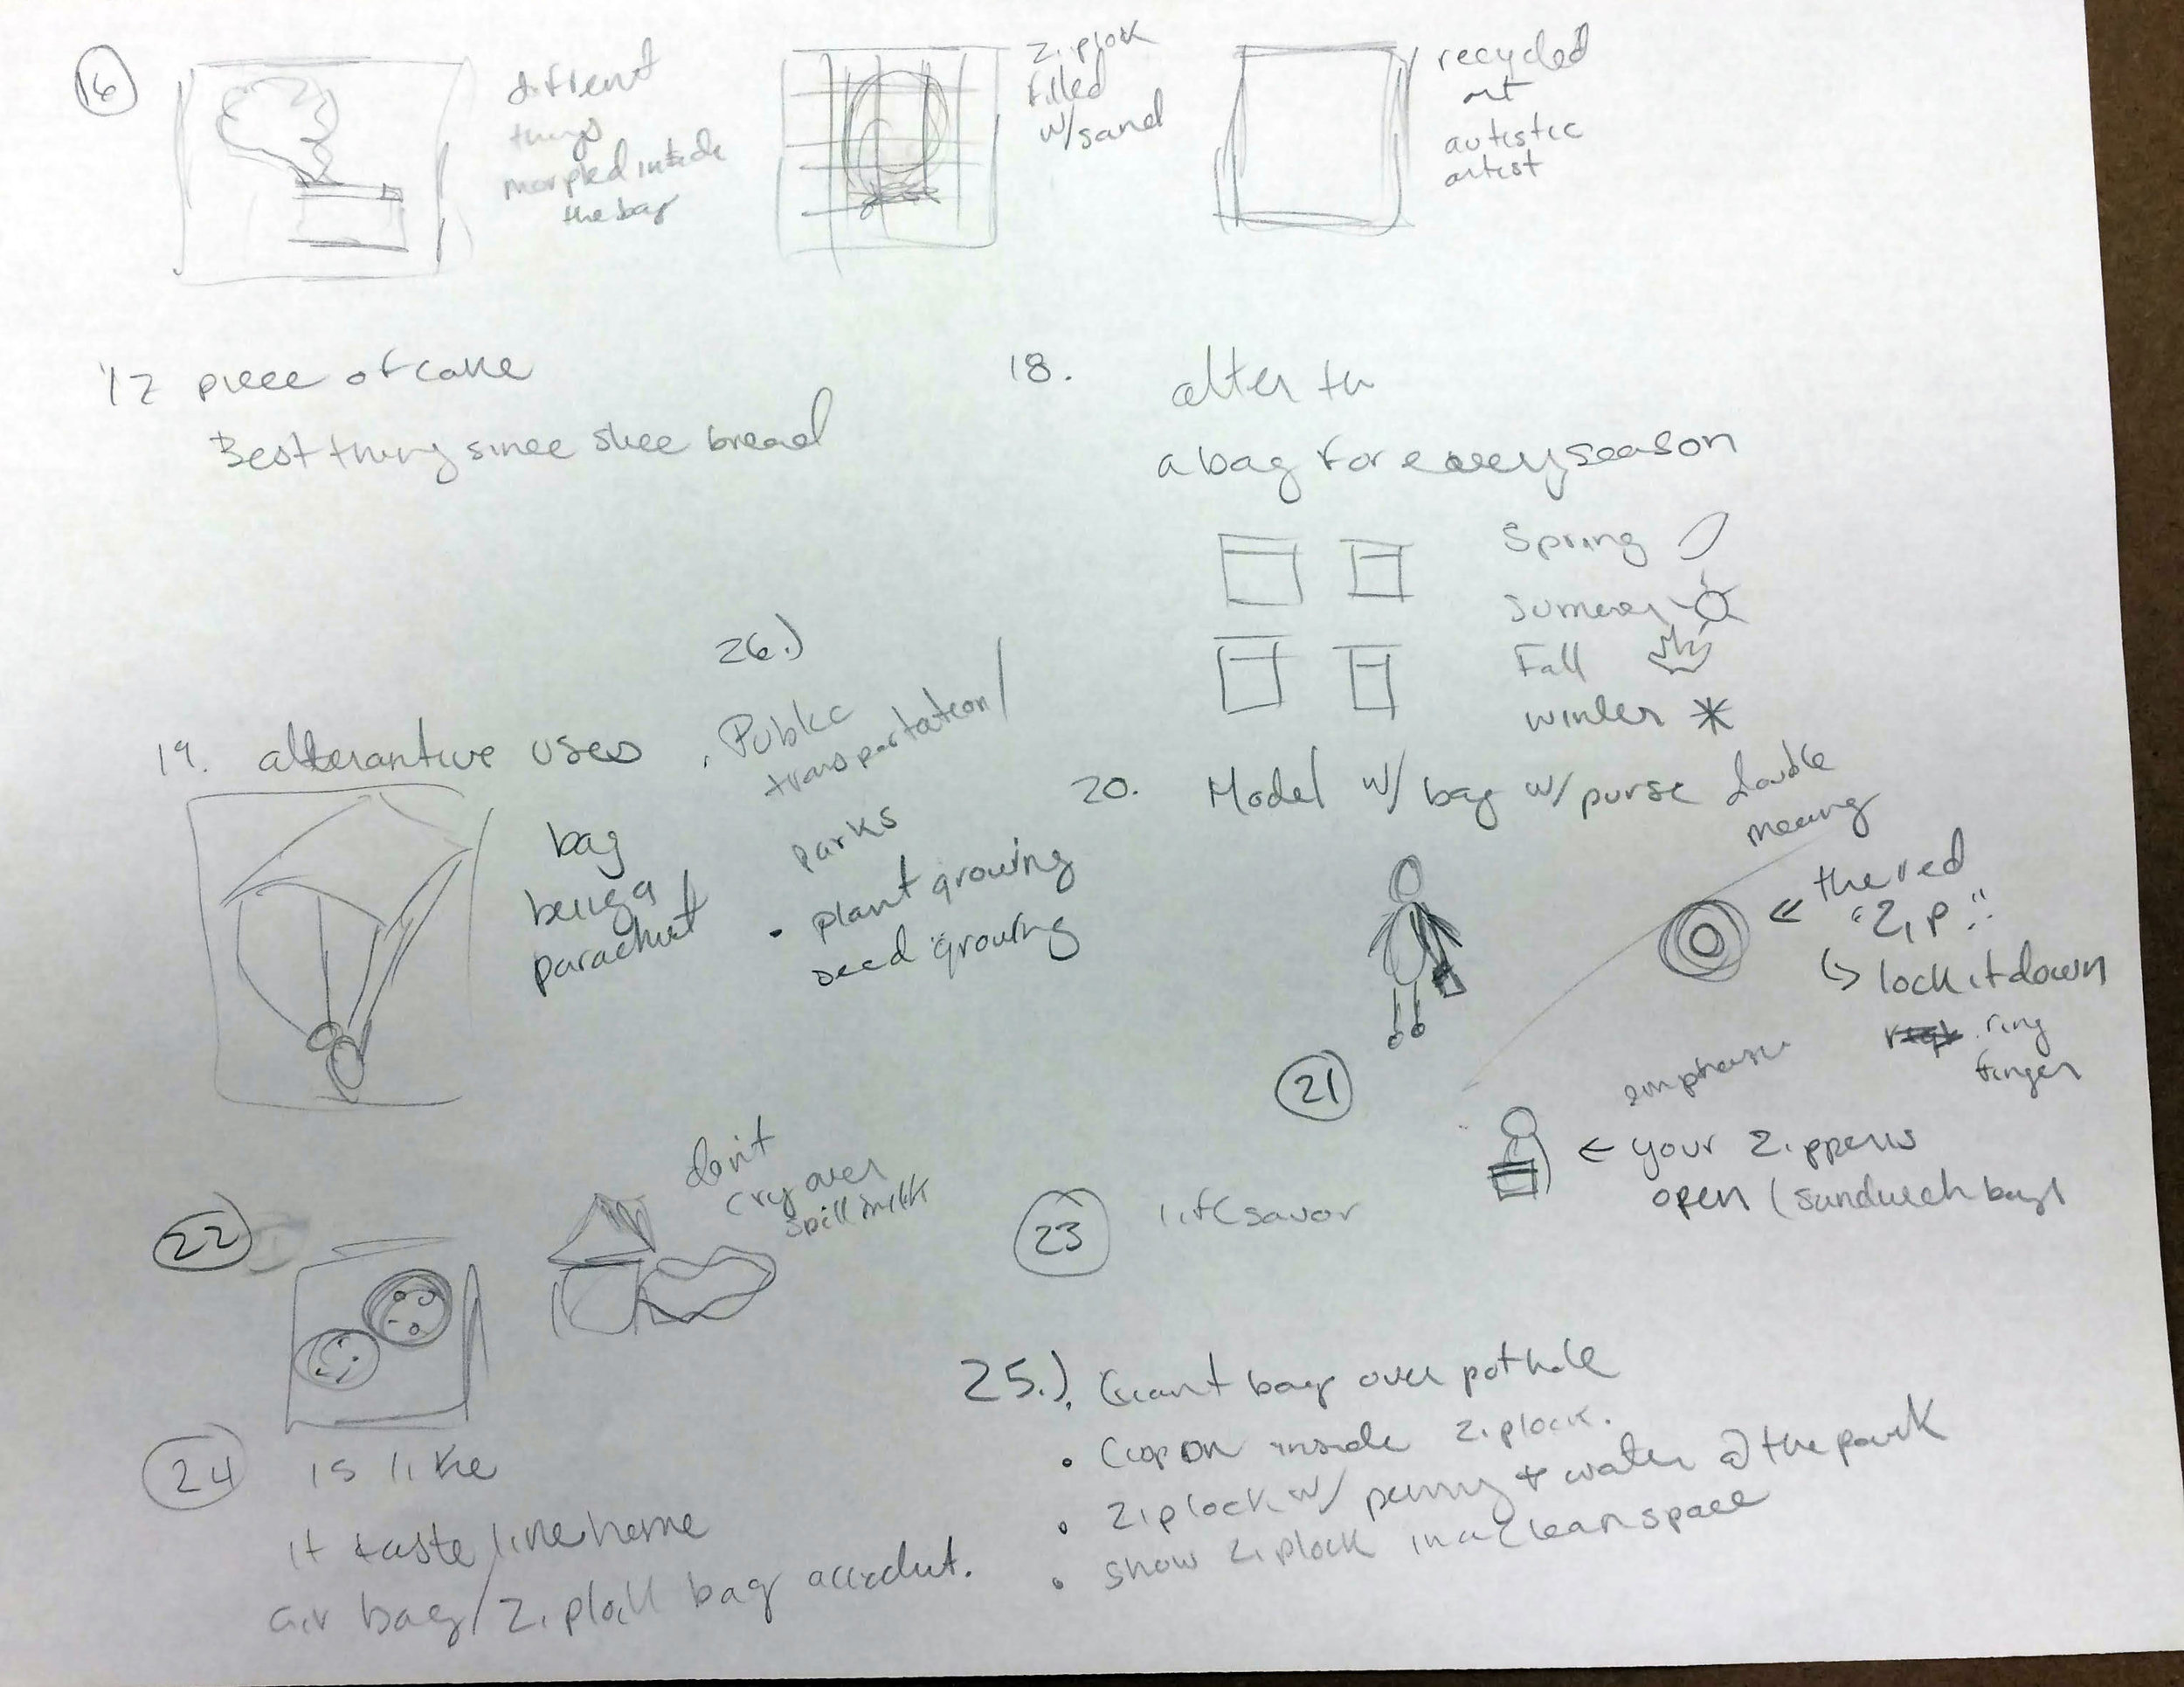 16
difrent
things
morpled inside
the bag
Ziplok
filled
w/sand
recycled
art
autistic
artist
17 piece of cake
Best thing since slice bread
18.
alter th
a bag for every season
Spring
Sumer
Fall
winter
19. alterantive uses
bag
being a
parachut
26.)
. Public
transportation/
parks
• plant growing
seed growing
20. Model w/ bag w/ purse double
meaning
21
← the red
"Zip."
↳ lock it down
ring
finger
emphasis
← your zippers
open (sandwich bag)
22
don't
cry over
spill milk
23 lifesavor
24 is like
it taste like home
air bag/Ziplock bag accident.
25.) • Giant bag over pothole
• Coopon inside Ziplock.
• Ziplock w/ penny + water @ the park
• show Ziplock in a clean space